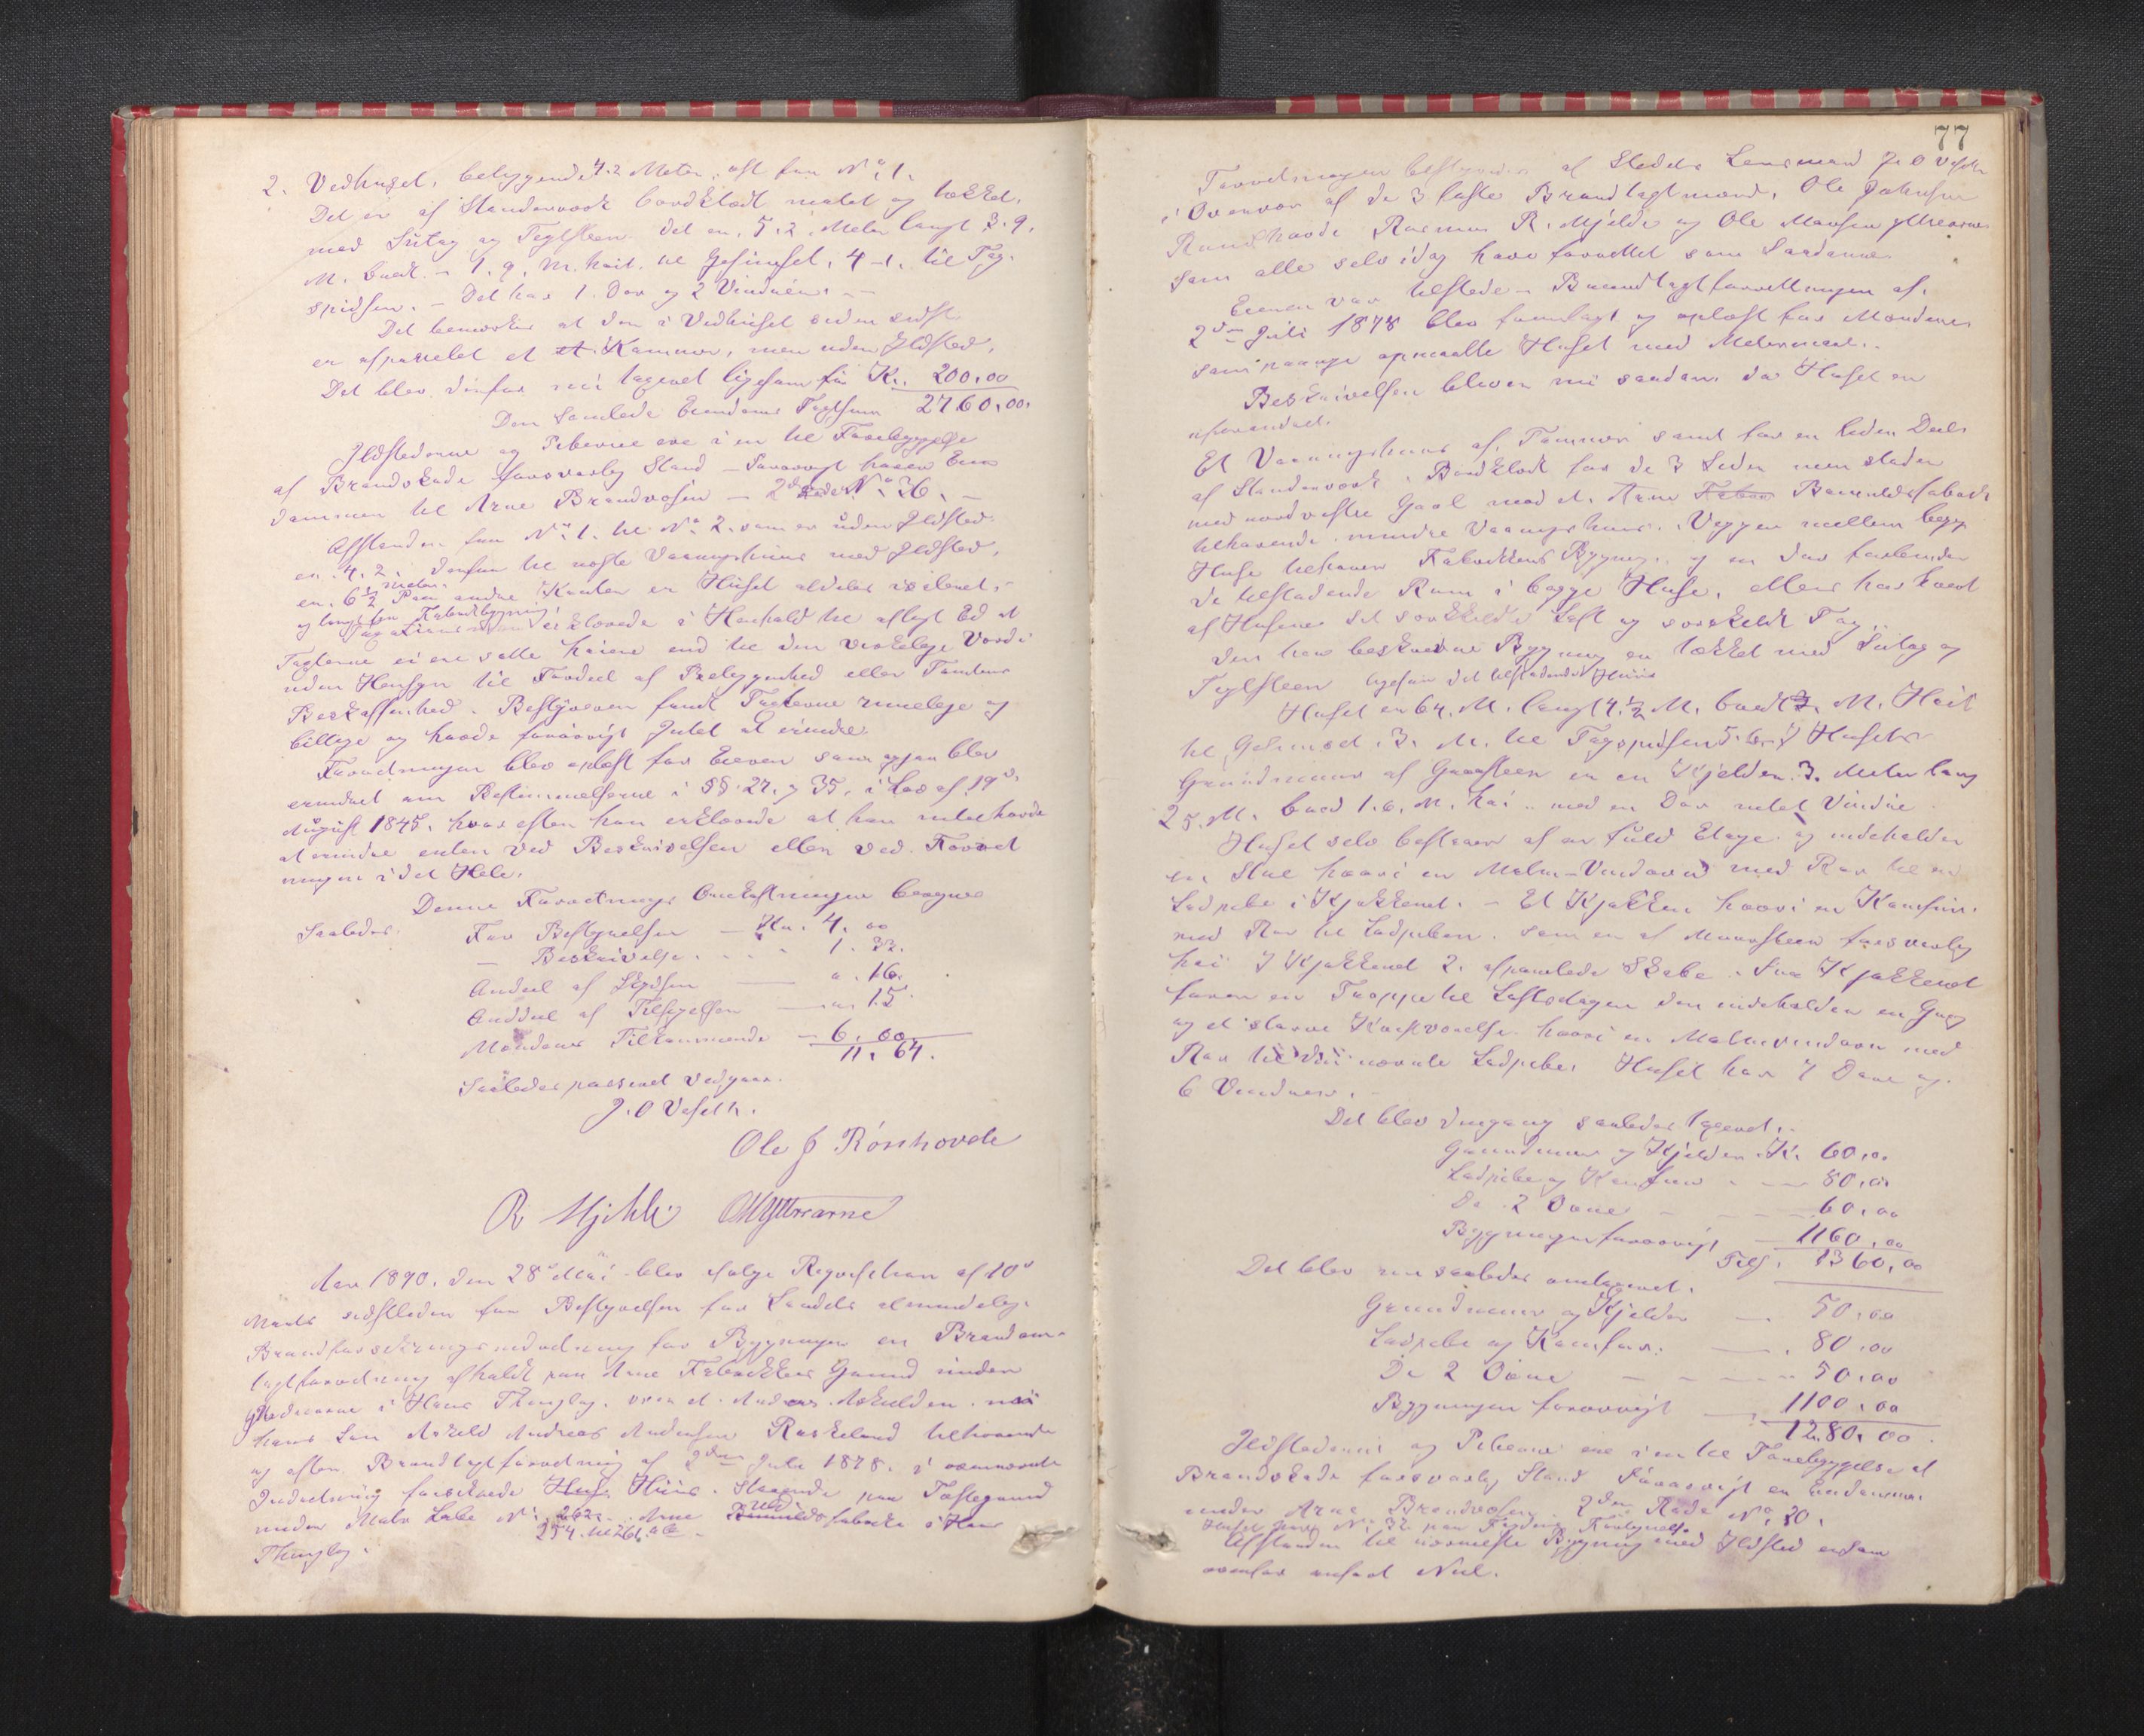 2. Vedhuset, beliggende 4.2 Meter øst fra No 1.
Det er af Standerværk bordklædt malet og tækket,
med Sutag og Teglsteen. Det er 5.2. Meter langt 3.9.
M. bredt - 1.9. M. høit til Gesimset, 4-1. til Tag-
spidsen. - Det har 1. Dør og 2 Vinduer. -
Det bemærkes at der i Vedhuset siden sidst
er afpanelet et Kammer, men uden Ildsted,
Det blev derfor nu taxeret ligesom før Kr. 200,00
Den samlede Eiendoms Taxtsum 2760,00.
Ildstederne og Piberne ere i en til Forebyggelse
af Brandskade forsvarlig Stand - Forøvrigt hører Eien-
dommen til Arne Brandrosen - 2den No 36. -
Afstanden fra No 1. til No 2. som er uden Ildsted
er 4.2. derfra til næste Vaaningshuus med Ildsted,
er 6½ Meter. Paa andre Kanter er Huset aldeles isoleret.
og længst fra Fabrikbygning
erklærede i Henhold til aflagt Ed at
Taxterne ei ere satte høiere end til den virkelige Værdi
uden Hensyn til Fordeel af Beliggenhed eller Tomtens
Beskaffenhed. Bestyreren fandt Taxterne rimelige og
billige og havde forøvrigt Intet at erindre.
Forretningen blev oplæst for Eieren som ogsaa blev
erindret om Bestemmelserne i §§ 27. og 35. i Lov af 19de
August 1845. hvorefter han erklærede at han intet havde
at erindre enten ved Beskrivelsen eller ved Forret
ningen i det Hele.
Denne Forretnings Omkostninger beregnes
Saaledes:
For Bestyrelsen - Kr. 4. 00
- Beskrivelse . . . " 1. 33.
Andeel af Skydsen — " . 16.
Anddeel af Tilsigelsen — " 15
Mændenes Tilkommende - 6. 00.
11. 64.
Saaledes passeret vedgaaes.
J. O Veseth.
Ole J Rönhovde
R Mjelde OM Yttrearne
Aar 1890. den 28de Mai blev ifølge Requisition af 10de
Marts sidstleden fra Bestyrelsen for Landets almindelige
Brandforsikringsindretning for Bygninger en Brandom-
taxtforretning afholdt paa Arne Fabrikkers Grund under
Ytrearne i Haus Thinglag, over et Anders Askilden nu
hans Søn Askild Andreas Andersen Raskeland tilhørende
og efter Brandtaxtforretning af 2den Juli 1878. i ovennævnte
Indretning forsikrede Huus. Staaende paa Fæstegrund
under Matr Løbe No 262 Arne Uldfabrik i Haus
254. til 261.
Thinglag.
77
Forretningen bestyredes af Stedets Lensmand J. O Veseth
i Overvær af de 3 faste Brandtaxtmænd, Ole Johnsen
Rønhovde Rasmus R. Mjelde og Ole Monsen Yttrearne
som alle selv idag have forrettet som Saadanne.
Eieren var tilstede - Brandtaxtforretningen af.
2den Juli 1878 blev fremlagt og oplæst for Mændene
som paany opmaalte Huset med Metermaal. -
Beskrivelsen bliver nu saadan, da Huset er
uforandret.
Et Vaaningshuus af Tømmer samt for en liden Deel
af Standerværk. Bordklædt for de 3 Sider men støder
med nordvestre Gavl mod et Arne Bomuldsfabrik
tilhørende mindre Vaaningshuus. Væggen mellem begge
Huse tilhører Fabrikkens Bygning og en Dør forbinder
de tilstødende Rum i begge Huse, ellers har hvert
af Husene sit særskilte Loft og særskilt Tag.
Den her beskrevne Bygning er tækket med Sutag og
Teglsteen ligesom det tilstødende Huus
Huset er 6 4. M. langt 4.½ M. bredt M. Høit
til Gesimset .3. M. til Tagspidsen 5. I Husets
Grundmuur af Graasteen er en Kjelder. 3. Meter lang
2 5. M. bred 1.6. M. høi - med en Dør intet Vindue
Huset selv bestaaer af en fuld Etage og indeholder
en Stue hvori en Malm-Vindovn med Rør til en
Ladpibe i Kjøkkenet. - Et Kjøkken hvori en Komfur
med Rør til Ladpiben, som er af Muursteen forsvarlig
høi I Kjøkkenet 2. afpanelede Skabe. Fra Kjøkkenet
fører en Trappe til Loftsetagen den indeholder en Gang
og et større Kvistværelse hvori en Malmvindovn med
Rør til den nævnte Ladpibe, Huset har 7 Døre og
6 Vinduer. -
Det blev dengang saaledes taxeret. -
Grundmuur og Kjelder Kr 60,00
Ladpibe og Komfur - — 80,00
De 2 Ovne - - - - 60,00
Bygningen forøvrigt - 1160,00
Tils. 1360,00
Det blev nu saaledes omtaxeret.
Grundmuur og Kjelder — . 50,00
Ladpibe og Komfur. — . 80,00
De 2 Ovne - - - - 50,00
Bygningen forøvrigt — 1100,00
1280,00
Ildstederne og Piberne ere i en til Forebyggelse af
Brandskade forsvarlig Stand Forøvrigt er Eiendommen
under Arne Brandrosen 2den Rode No 30.
Huset har No 32 paa
Afstanden til nærmeste Bygning med Ildsted er som
ovenfor anført Nul.